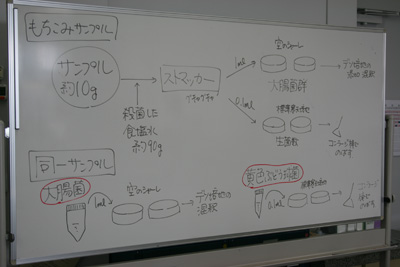 もちこみサンプル
サンプル
約10g
殺菌した
食塩水
約90g
ストマッカー
1ml
空のシャーレ
大腸菌群
デソ培地の
混釈
0.1ml
標準寒天培地
生菌数
コンラージ棒で
のばす
同一サンプル
大腸菌
1ml
空のシャーレ
デソ培地の
混釈
黄色ぶどう球菌
0.1ml
コンラージ
棒で
のばす